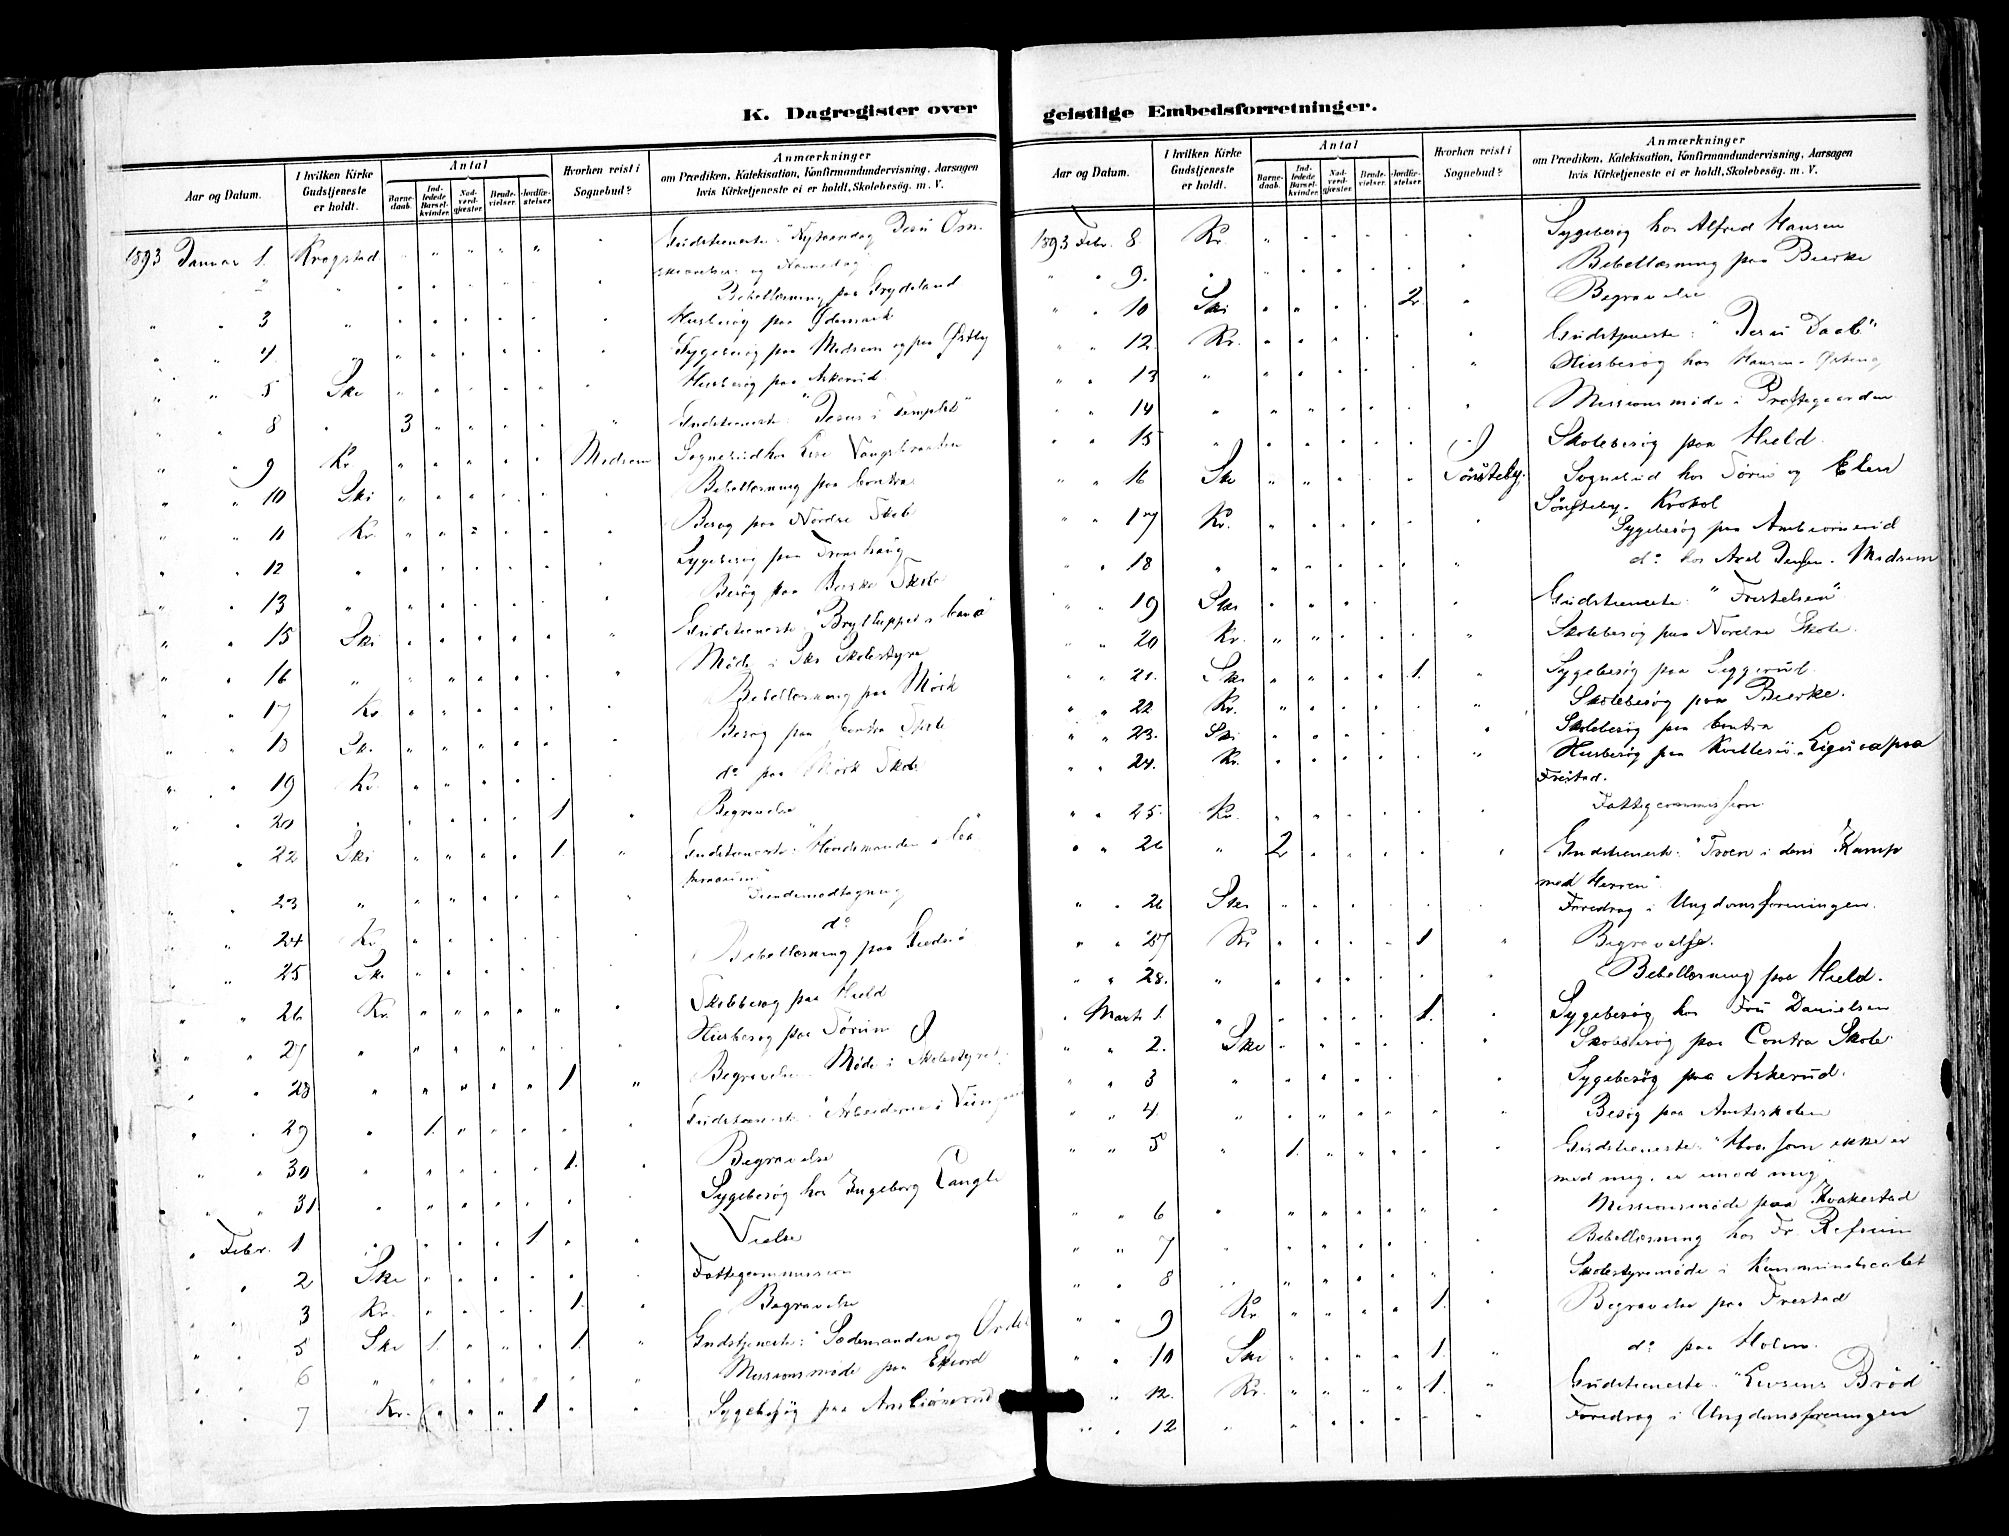 K. Dagregister over
Aar og Datum.
I hvilken Kirke Gudstjeneste er holdt.
Antal
Barnedaab.
Indledede Barselkvinder.
Nadverdgjæster.
Brudevielser.
Jordfæstelser.
Hvorhen reist i Sognebud?
Anmærkninger
om Prædiken, Katekisation, Konfirmandundervisning, Aarsagen
hvis Kirketjeneste ei er holdt, Skolebesøg. m. V.
1893 Januar 1. Krogstad Gudstieneste: "Nytaarsdag Jesu Om-
skiærelse og Navnedag"
" " Bibellæsning paa Grydeland
" " 3 " Husbesøg paa Ødemark
" " 4. " Sygebesøg paa Midsem og paa Østby
" " 5 Ski Husbesøg paa Askerud
" " 8 " 3 Gudstieneste: "Jesus i Templet"
" " 9 Kr Midsem Sognebud hos Vangsbraaten
" " 10 Ski Bibellæsning paa Contra
" " 11 Kr. Besøg paa Nordre Skole
" " 12 " Sygebesøg paa Tronshaug
" " 13 " Besøg paa Skole
" " 15 Ski Gudstieneste: Brylluppet i Cana
" " 16 " Møde i Ski Skolestyre
" " 17 Kr Bibellæsning paa Mørk
" " 18 Sk. Besøg paa Contra Skole
" " 19 Kr. do paa Mørk Skole
" " 20 " 1 Begravelse
" " 22 Ski 1. Gudstieneste: Høvedsmanden i Ca-
pernaum"
" " 23 " Tiendemodtagning
" " 24 Kr do
" " 25 Sk. Bibellæsning paa
" " 26 Kr. Skolebesøg paa Hield
" " 27 " Husbesøg paa
" " 28 " 1 Begravelse. Møde i Skolestyret.
" " 29 " 1. Gudstieneste: "Arbeiderne i Viingaarden
" " 30 " 1. Begravelse
" " 31 " Sygebesøg hos Ingeborg Langli
" Febr. 1 " 1 Vielse
" " 2 Ski Fattigcommission
" " 3 Kr. 1. Begravelse
" " 5 Ski 1. 1. Gudstjeneste: "Sædemanden og Ordet
" " 6 " Missionsmøde paa
" " 7 Kr. 1 Sygebesøg paa Ambiørnerud
geistlige Embedsforretninger.
Aar og Datum.
I hvilken Kirke Gudstjeneste er holdt.
Antal
Barnedaab.
Indledede Barselkvinder.
Nadverdgjæster.
Brudevielser.
Jordfæstelser.
Hvorhen reist i Sognebud?
Anmærkninger
om Prædiken, Katekisation, Konfirmandundervisning, Aarsagen
hvis Kirketjeneste ei er holdt, Skolebesøg. m. V.
1893 Febr. 8. Kr. Sygebesøg hos Alfred Hansen
" " 9. " Bibellæsning paa Bierke
" " 10 Ski 2 Begravelse
" " 12. Kr. Gudstjeneste: "Jesu Daab"
" " 13 " Husbesøg hos Hansen
" " 14 " Missionsmøde i Præstegaarden
" " 15 " Skolebesøg paa Hield.
" " 16 Ski Sønsteby. Sognebud hos Søren og Elen
Sønsteby. Krokol
" " 17 Kr. Sygebesøg paa Ambiørnerud
" " 18 " do hos Axel Jensen. Midsem
" " 19 Ski Gudstieneste: "Fristelsen"
" " 20 Kr. Skolebesøg paa Nordre Skole.
" " 21. Ski 1. Sygebesøg paa Siggerud
" " 22 Kr. Skolebesøg paa Bierke.
" " 23. Ski Skolebesøg paa Contra
" " 24. Kr. Husbesøg paa
Frestad.
" " 25. Kr. Fattigcommission
" " 26 " 2 Gudstieneste: "Troen i dens Kamp
med Herren".
" " 26 Ski Foredrag i Ungdomsforeningen.
" " 27 Kr 1 Begravelse.
" " 28. " Bibellæsning paa Hield.
" Marts 1. " 1. Sygebesøg hos Fru Danielsen
" " 2. Ski Skolebesøg paa Contra Skole.
" " 3 " Sygebesøg paa Askerud.
" " 4. " Besøg paa Amtsskolen
" " 5 " 1. Gudstieneste: "Hvo som ikke er
med mig, er imod mig"
" " 6 " Missionsmøde paa Kvakestad
" " 7 " Bibellæsning hos Fr. Refsum
" " 8 " Skolestyremøde i Kommunelocalet
" " 9 Kr 1. Begravelse paa Frestad
" " 10 Ski 1. do paa Holm.
" " 12. Kr. 1. Gudstieneste: "Livsens Brød"
" " 12 " Foredrag i Ungdomsforeningen